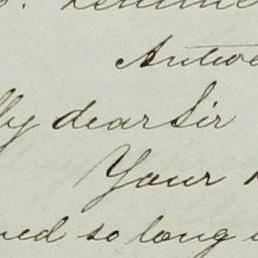 Antwe
My dear Sir
Your
ved so long